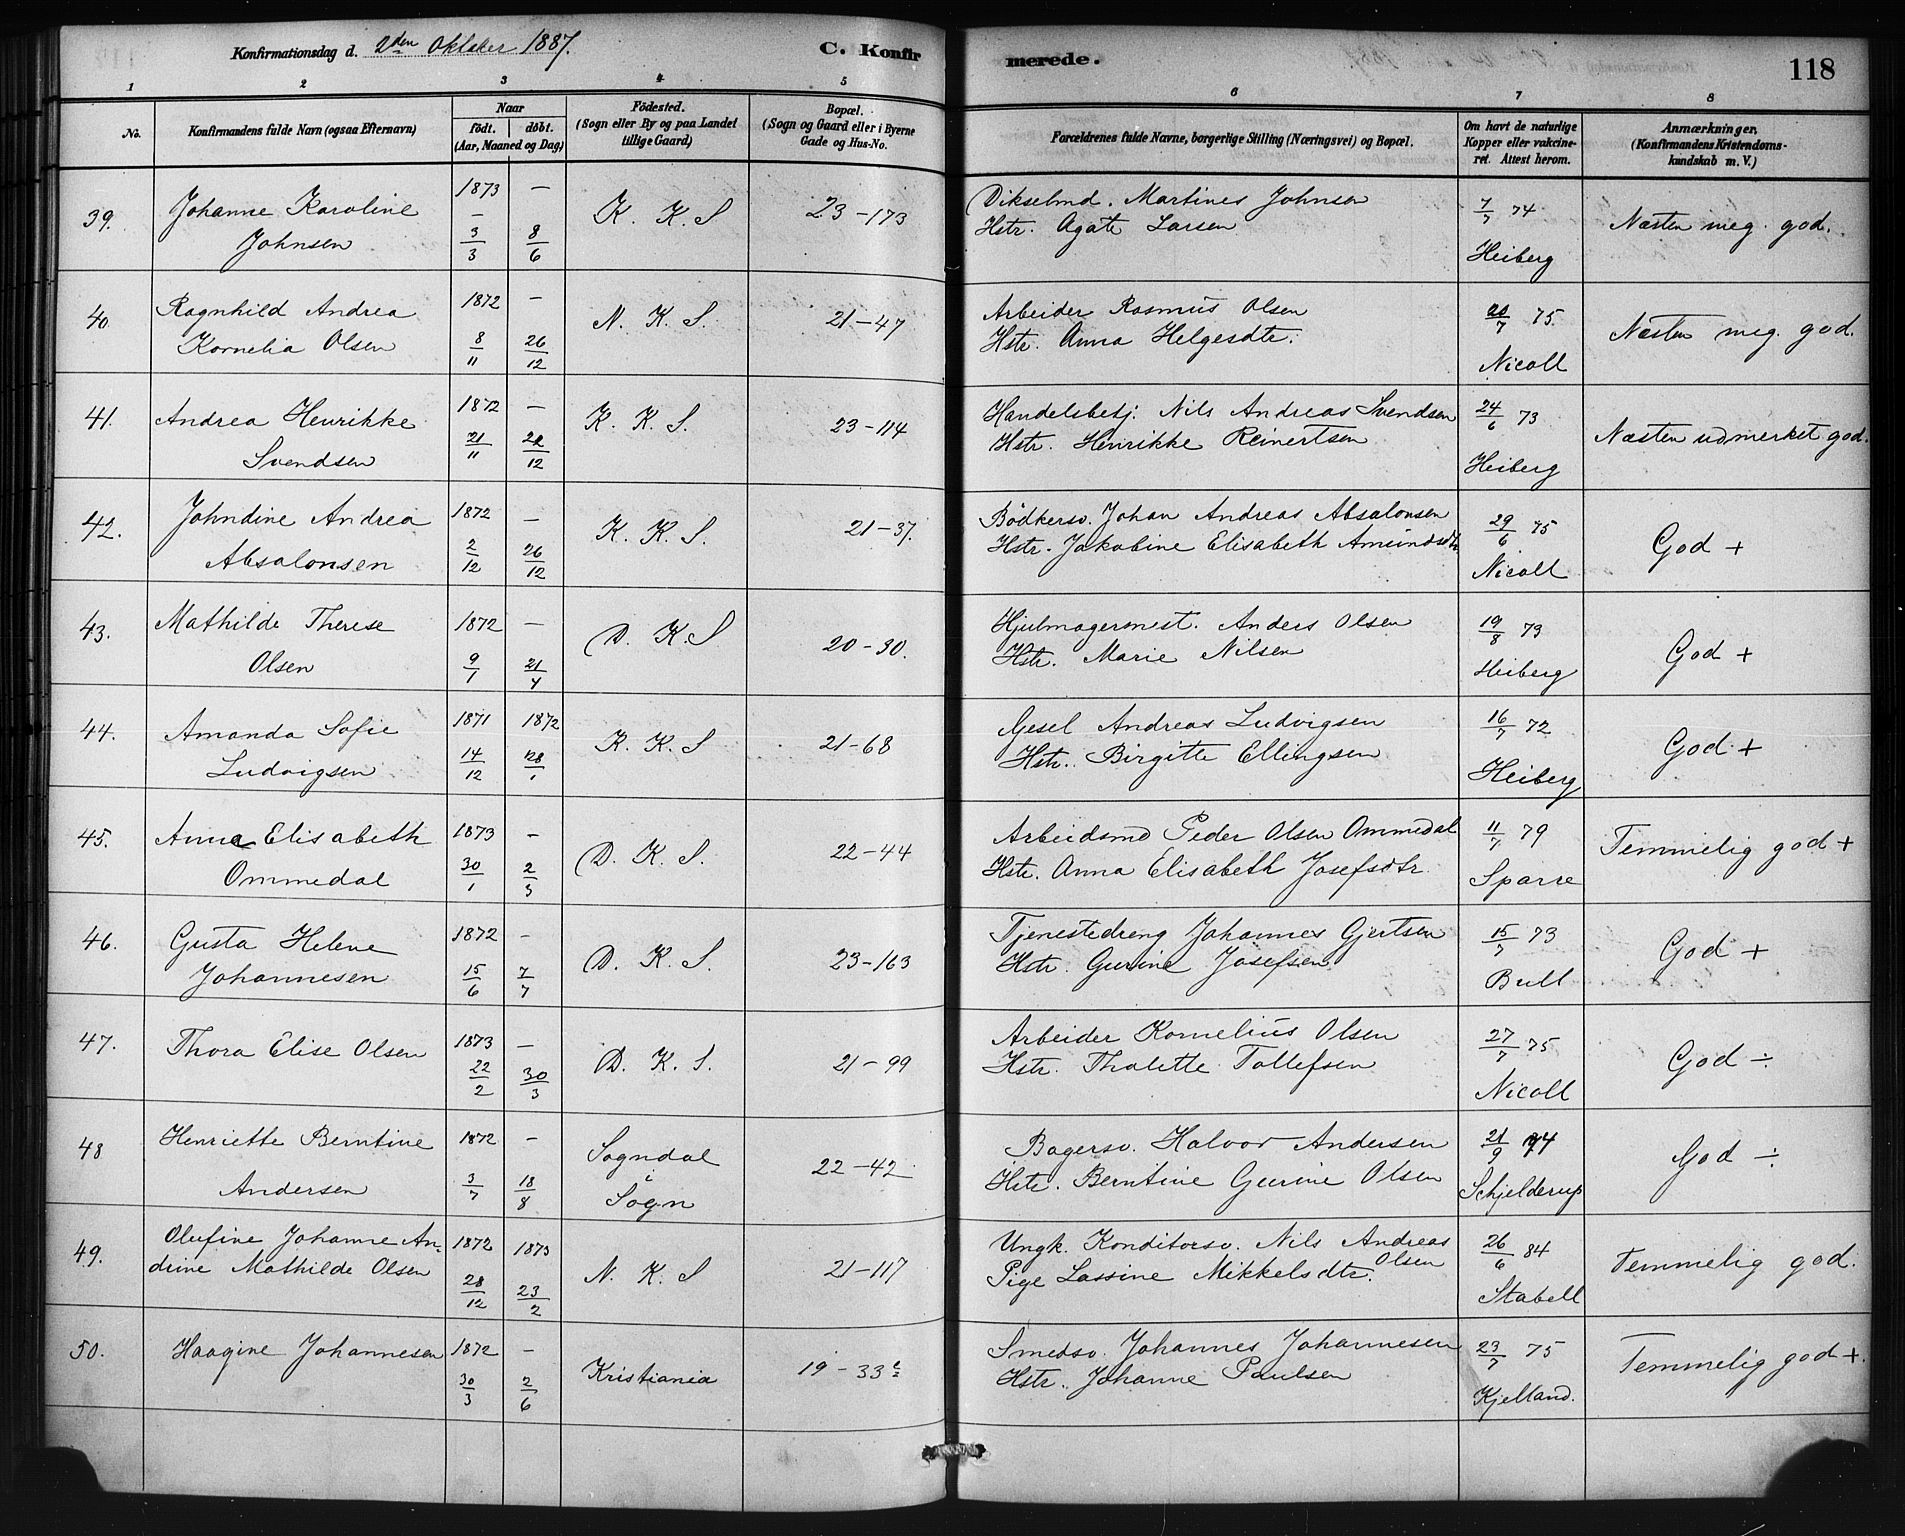 Konfirmationsdag d. 2den Oktober 1887.
C. Konfir
merede.
118
1 2 3 4 5 6 7 8
No.
Konfirmandens fulde Navn (ogsaa Efternavn)
Naar
födt. döbt.
(Aar, Maaned og Dag)
Födested.
(Sogn eller By og paa Landet
tillige Gaard)
Bopæl.
(Sogn og Gaard eller i Byerne
Gade og Hus-No.
Forældrenes fulde Navne, borgerlige Stilling (Næringsvei) og Bopæl.
Om havt de naturlige
Kopper eller vakcine-
ret. Attest herom.
Anmærkninger,
(Konfirmandens Kristendoms-
kundskab m. V.)
39. Johanne Karoline
Johnsen
1873 —
—
3/3 8/6
K. K. S
23-173
Dikselmd. Martines Johnsen
Hstr. Agate Larsen
7/7 74
Heiberg
Næsten meg. god.
40 Ragnhild Andrea
Kornelia Olsen
1872 —
8/11 26/12
N. K. S.
21-47
Arbeider Rasmus Olsen
Hstr. Anna Helgesdtr.
20/7 75.
Nicoll
Næsten meg. god.
41. Andrea Henrikke
Svendsen
1872 —
21/11 22/12
K. K. S.
23-114
Handelsbetj. Nils Andreas Svendsen
Hstr. Henrikke Reinertsen
24/6 73
Heiberg
Næsten udmerket god.
42. Johndine Andrea
Absalonsen
1872 —
2/12 26/12
K. K. S.
21-37.
Bødkersv. Johan Andreas Absalonsen
Hstr. Jakobine Elisabeth Amundsdtr
29/6 75
Nicoll
God +
43. Mathilde Therese
Olsen
1872 —
9/1 21/4
D. K. S
20-30.
Hjulmagermest. Anders Olsen
Hstr. Marie Nilsen
19/8 73
Heiberg
God +
44. Amanda Sofie
Ludvigsen
1871 1872
14/12 28/1
K. K. S
21-68
Gesel Andreas Ludvigsen
Hstr. Birgitte Ellingsen
16/7 72
Heiberg
God +
45. Anna Elisabeth
Ommedal
1873 —
30/1 2/3
D. K. S.
22-44
Arbeidsmd Peder Olsen Ommedal
Hstr. Anna Elisabeth Josefsdtr
11/7 79
Sparre
Temmelig god +
46. Gusta Helene
Johannesen
1872 —
15/6 7/7
D. K. S.
23-163
Tjenestedreng Johannes Gjertsen
Hstr. Gurine Josefsen
15/7 73
Bull
God +
47. Thora Elise Olsen
1873 —
22/2 30/3
D. K. S.
21-99
Arbeider Kornelius Olsen
Hstr. Thalette Tollefsen
27/7 75
Nicoll
God ÷
48 Henriette Berntine
Andersen
1872 —
3/7 18/8
Sogndal
i
Sogn
22-42
Bagersv. Halvor Andersen
Hstr. Berntine Gurine Olsen
21/9 74
Schjelderup
God ÷
49. Olufine Johanne An-
drine Mathilde Olsen
1872 1873
28/12 23/2
N. K. S
21-117
Ungk. Konditorsv. Nils Andreas
Olsen
Pige Lassine Mikkelsdtr.
26/6 84
Stabell
Temmelig god.
50. Haagine Johannesen
1872 —
30/3 2/6
Kristiania
19-33c
Smedsv. Johannes Johannesen
Hstr. Johanne Paulsen
23/7 75
Kjelland.
Temmelig god +.